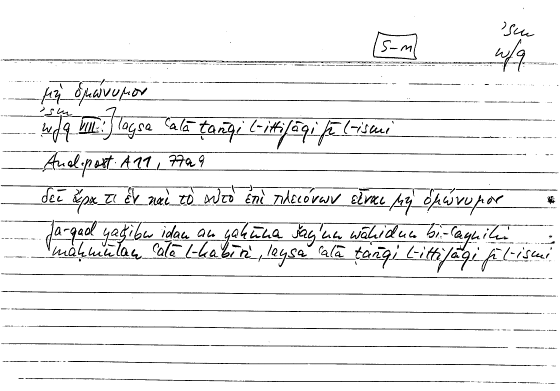 s-m
ʾsm
w/q
μὴ ὁμώνυμον
ʾsm
w/q VIII:] laysa ʿalā ṭarīqi l-ittifāqi fī l-ismi
Anal. post. A 11, 77a9
δεῖ ἄρα τι ἓν καὶ τὸ αὐτὸ ἐπὶ πλειόνων εἶναι μὴ ὁμώνυμον *
fa-qad yaǧibu iḏan an yakūna šayʾun wāḥidun bi-ʿaynihi
maḥmūlan ʿalā l-kaṯīri, laysa ʿalā ṭarīqi l-ittifāqi fī l-ismi.